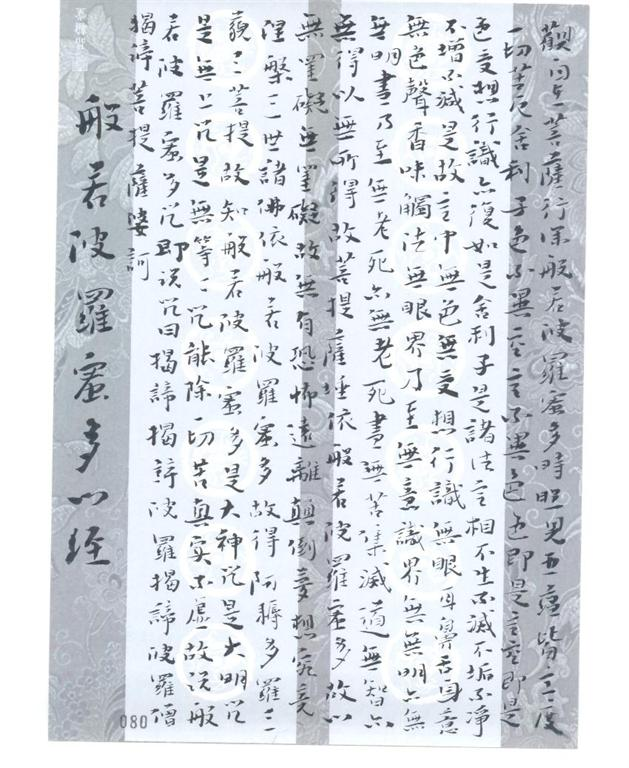 觀自在菩薩行深般若波羅蜜多時照見五蘊皆空度
一切苦厄舍利子色不異空空不異色色即是空空即是
色受想行識亦復如是舍利子是諸法空相不生不滅不垢不淨
不增不減是故空中無色無受想行識無眼耳鼻舌身意
無色聲香味觸法無眼界乃至無意識界無無明亦無
無明盡乃至無老死亦無老死盡無苦集滅道無智亦
無得以無所得故菩提薩埵依般若波羅蜜多故心
無罣礙無罣礙故無有恐怖遠離顛倒夢想究竟
涅槃三世諸佛依般若波羅蜜多故得阿耨多羅三
藐三菩提故知般若波羅蜜多是大神咒是大明咒
是無上咒是無等等咒能除一切苦真實不虛故說般
若波羅蜜多咒即說咒曰揭諦揭諦波羅揭諦波羅僧
揭諦菩提薩婆訶
般若波羅蜜多心經
080